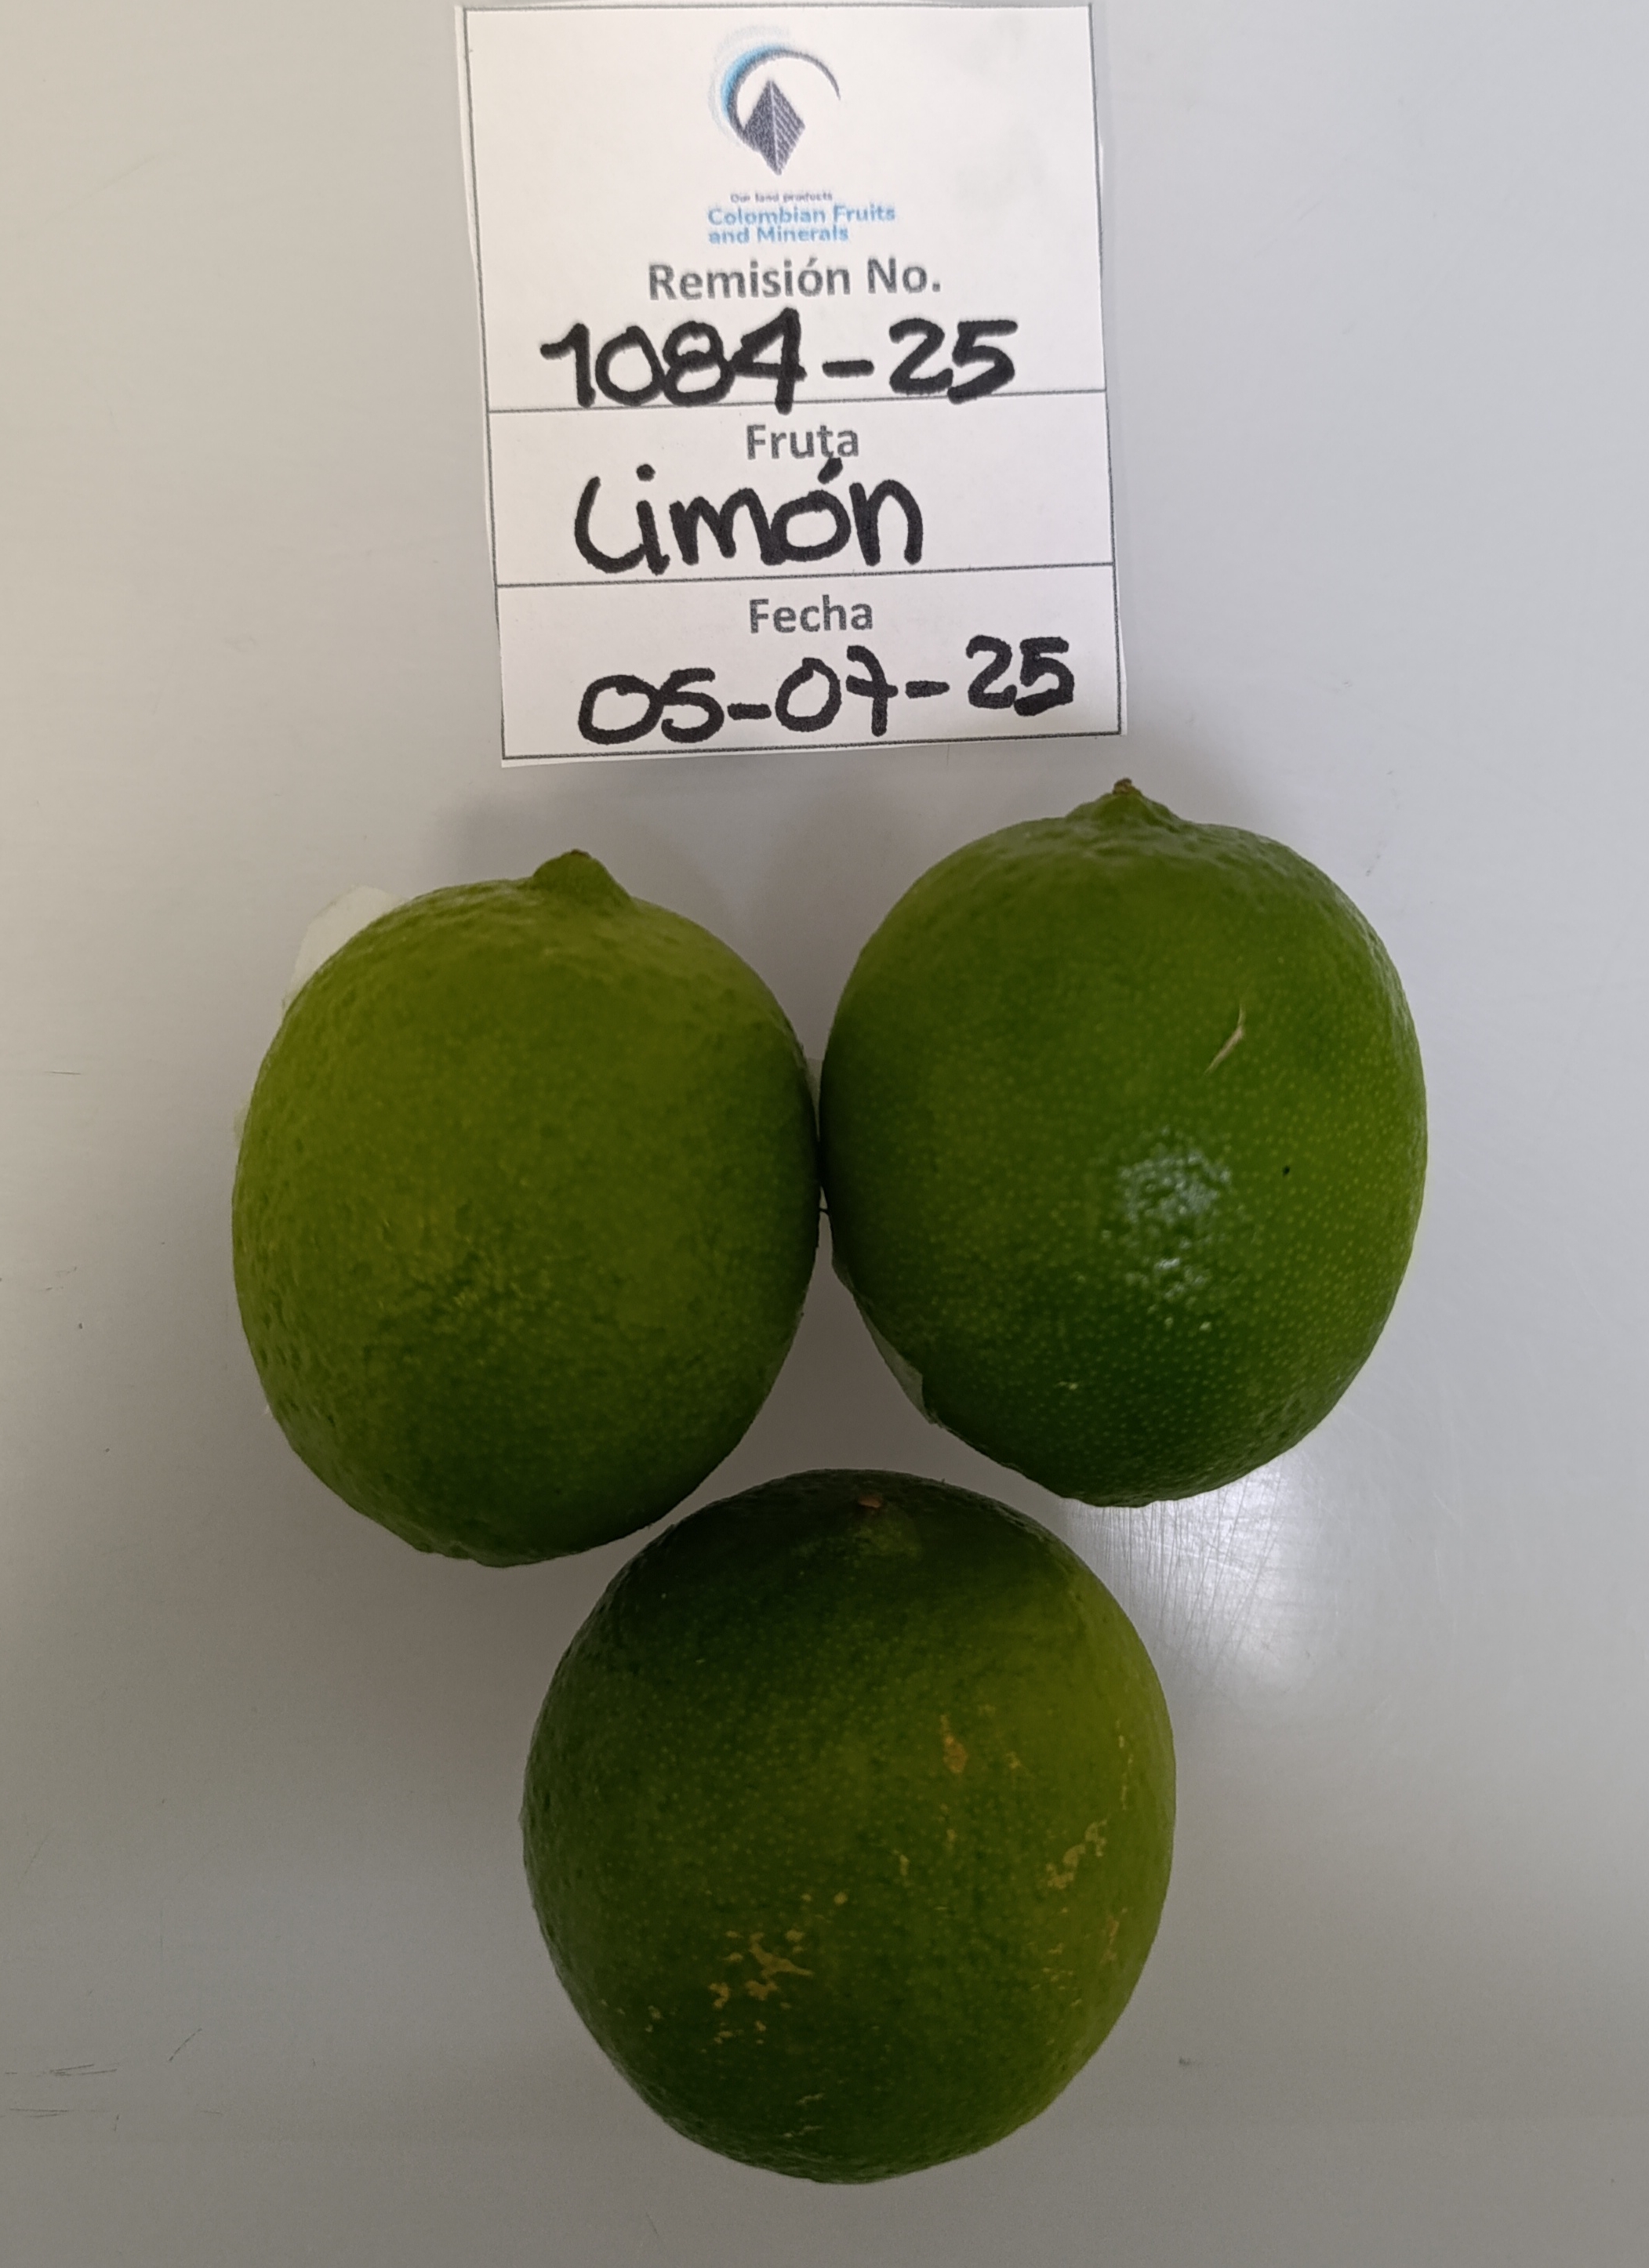 Our land products
Colombian Fruits
and Minerals
Remisión No.
1084-25
Fruta
Limón
Fecha
05-07-25